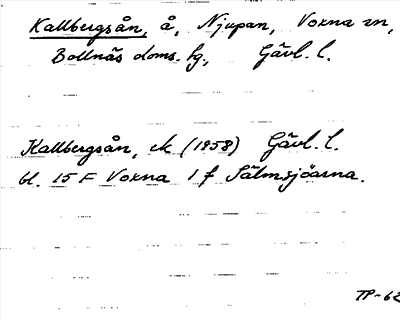 Kallbergsån, å, Njupan, Voxna sn,
Bollnäs doms. fg., Gävl. l.
Kallbergsån, ek (1958) Gävl. l.
bl. 15 F Voxna 1 f Sälmsjöarna.
TP-62